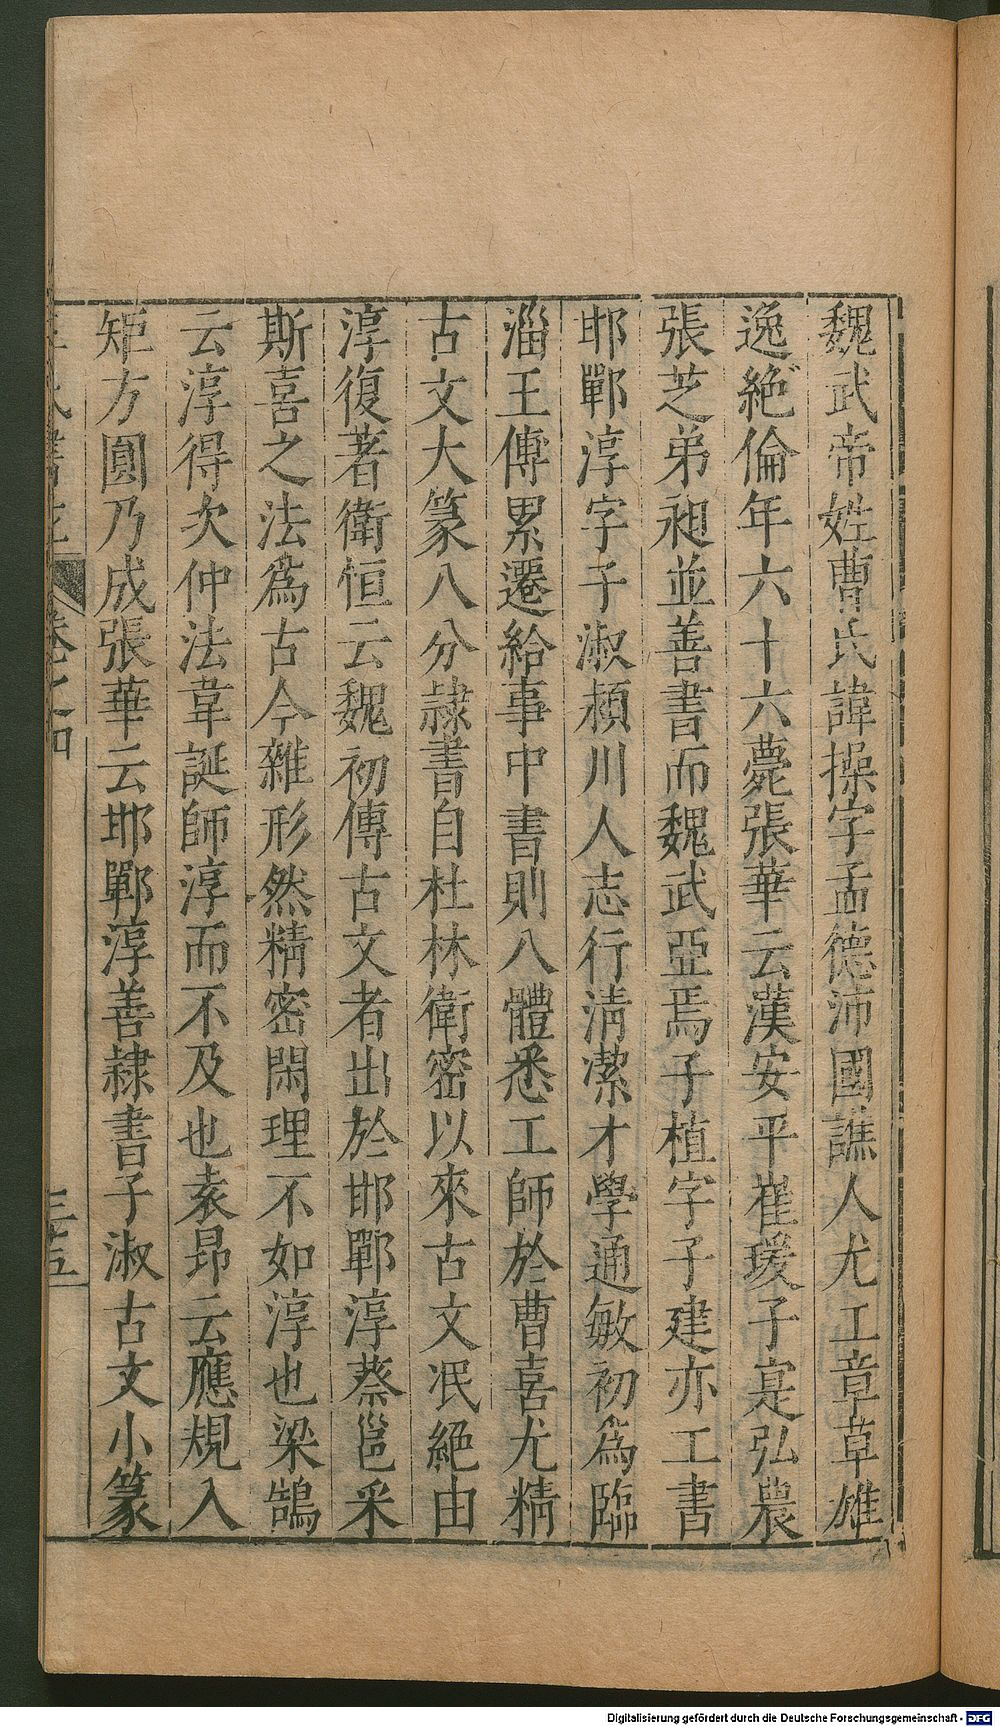 魏武帝姓曹氏諱操字孟德沛國譙人尤工章草雄
逸絕倫年六十六薨張華云漢安平崔瑗子寔弘農
張芝弟昶並善書而魏武亞焉子植字子建亦工書
邯鄲淳字子淑潁川人志行清潔才學通敏初爲臨
淄王傅累遷給事中書則八體悉工師於曹喜尤精
古文大篆八分隷書自杜林衛密以來古文泯絕由
淳復著衛恒云魏初傳古文者出於邯鄲淳蔡邕采
斯喜之法爲古今雜形然精密閑理不如淳也梁鵠
云淳得次仲法韋誕師淳而不及也袁昂云應規入
矩方圓乃成張華云邯鄲淳善隷書子淑古文小篆
卷之四
三十五
Digitalisierung gefördert durch die Deutsche Forschungsgemeinschaft - DFG